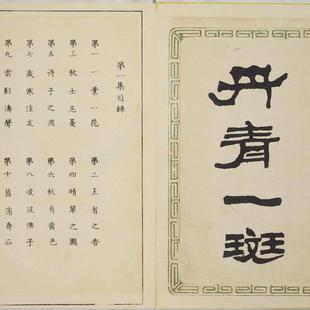 丹青一斑
第一集目錄
第一 一葉一花
第二 王者之香
第三 秋士
第四 晴翠之圖
第五 子之圖
第六 秋有黄色
第七 歲寒佳友
第八 凌波僊子
第九 雲影濤聲
第十 菖蒲壽石